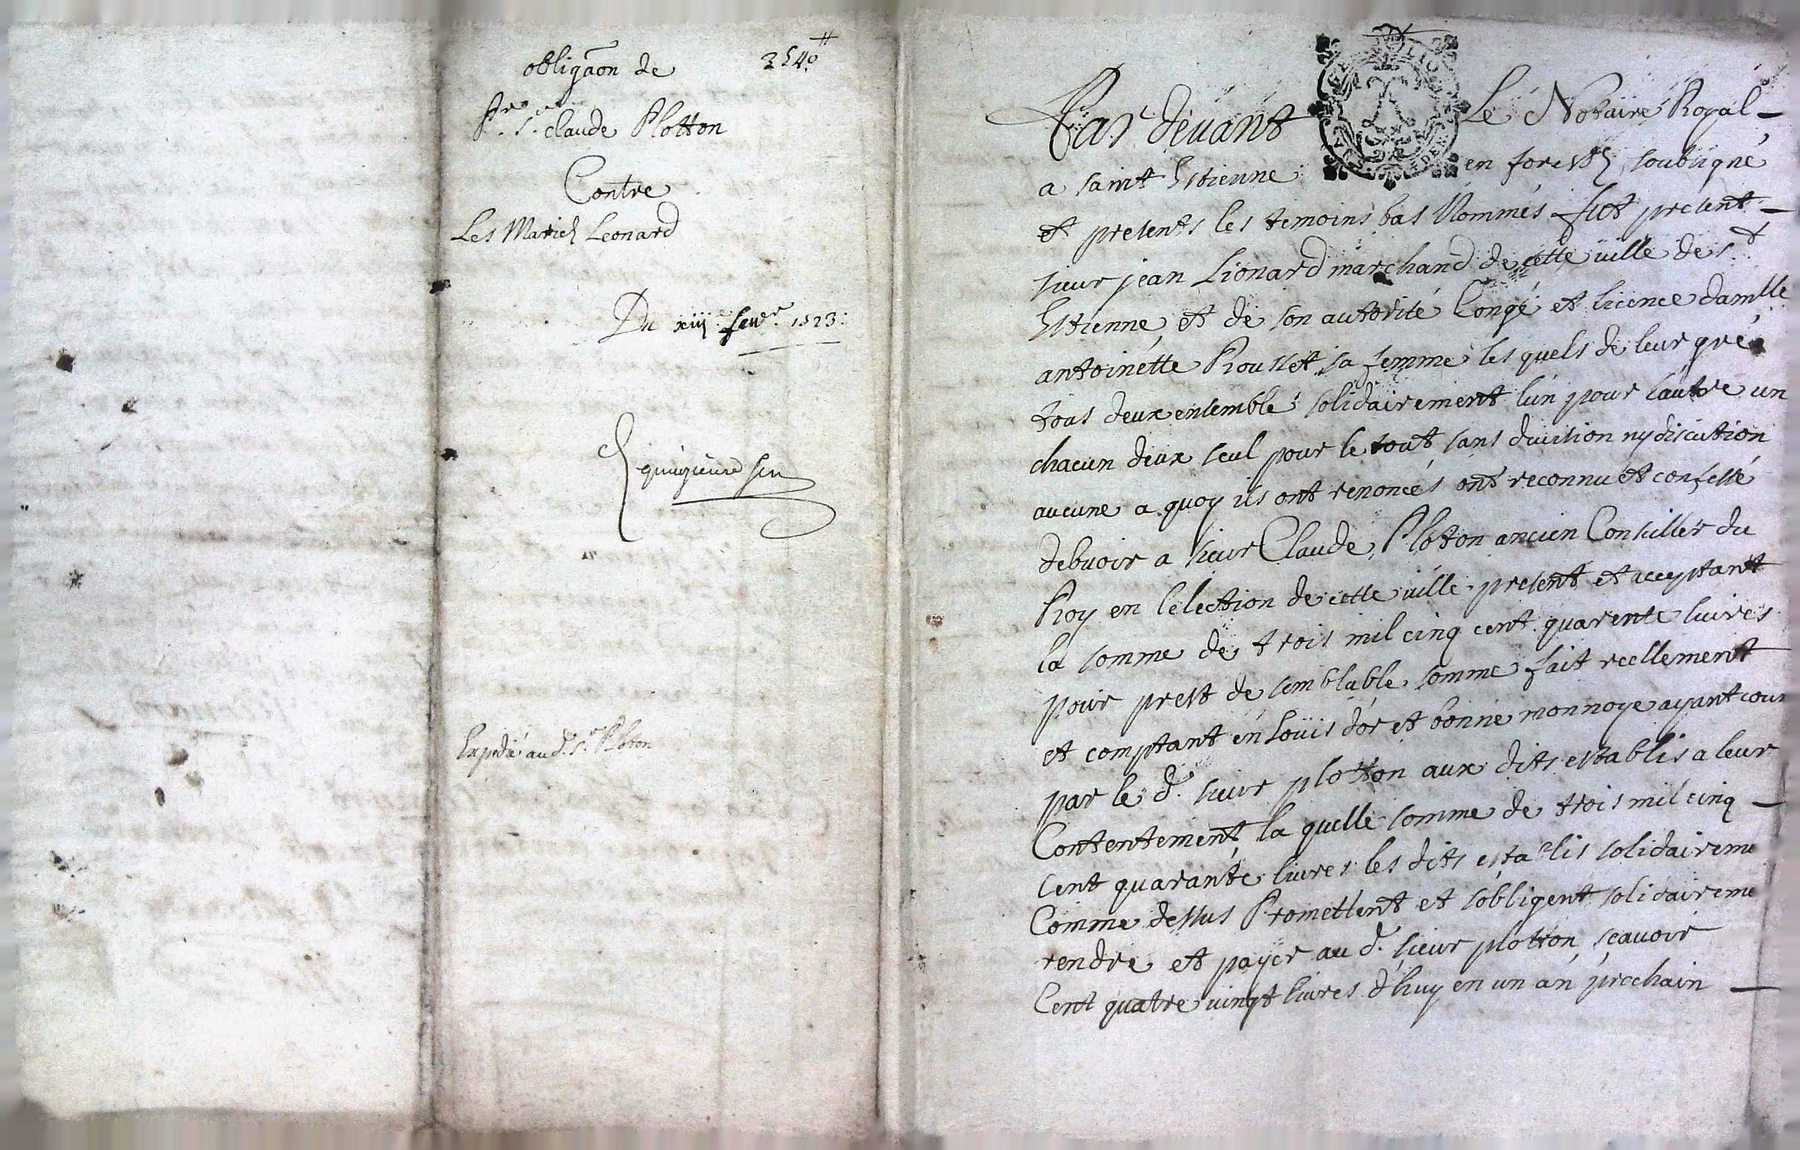 obligaon de 3540#
Pr. Sr. claude Plotton
Contre
Les Mariés Leonard
Du xiii feur. 1723:
quinzieme
Expedié au d. sr Ploton
Par devant Le Notaire Royal
a saint Estienne en forestz soubsigné
et presents les temoins bas Nommés fut present
sieur jean Lionard marchand de cette ville de St
Estienne, et de son autorité Congé et licence damlle
antoinétte Rousset sa femme les quels de leur gré
tous deux ensemble solidairement lún pour lautre un
chacun deux seul pour le tout sans diuision ny discution
aucune a quoy ils ont renoncés ont reconnu et confessé
debuoir a sieur Claude Plotton ancien Consiller du
Roy en lelection de cette ville present et acceptant
la somme de trois mil cinq cent quarente liures
pour prest de semblable somme fait reellement
et comptant én Loüis dór et bonne monnoye ayant cour
par le d. sieur plotton aux dits establis a leur
Contentement la quelle somme de trois mil cinq
cent quaranté liures les dits establis solidaireme
Comme dessus Promettent et sóbligent solidaireme
rendre et payer au d. sieur plotton scauoir
Cent quatre vingt liures d'huy en un an prochain